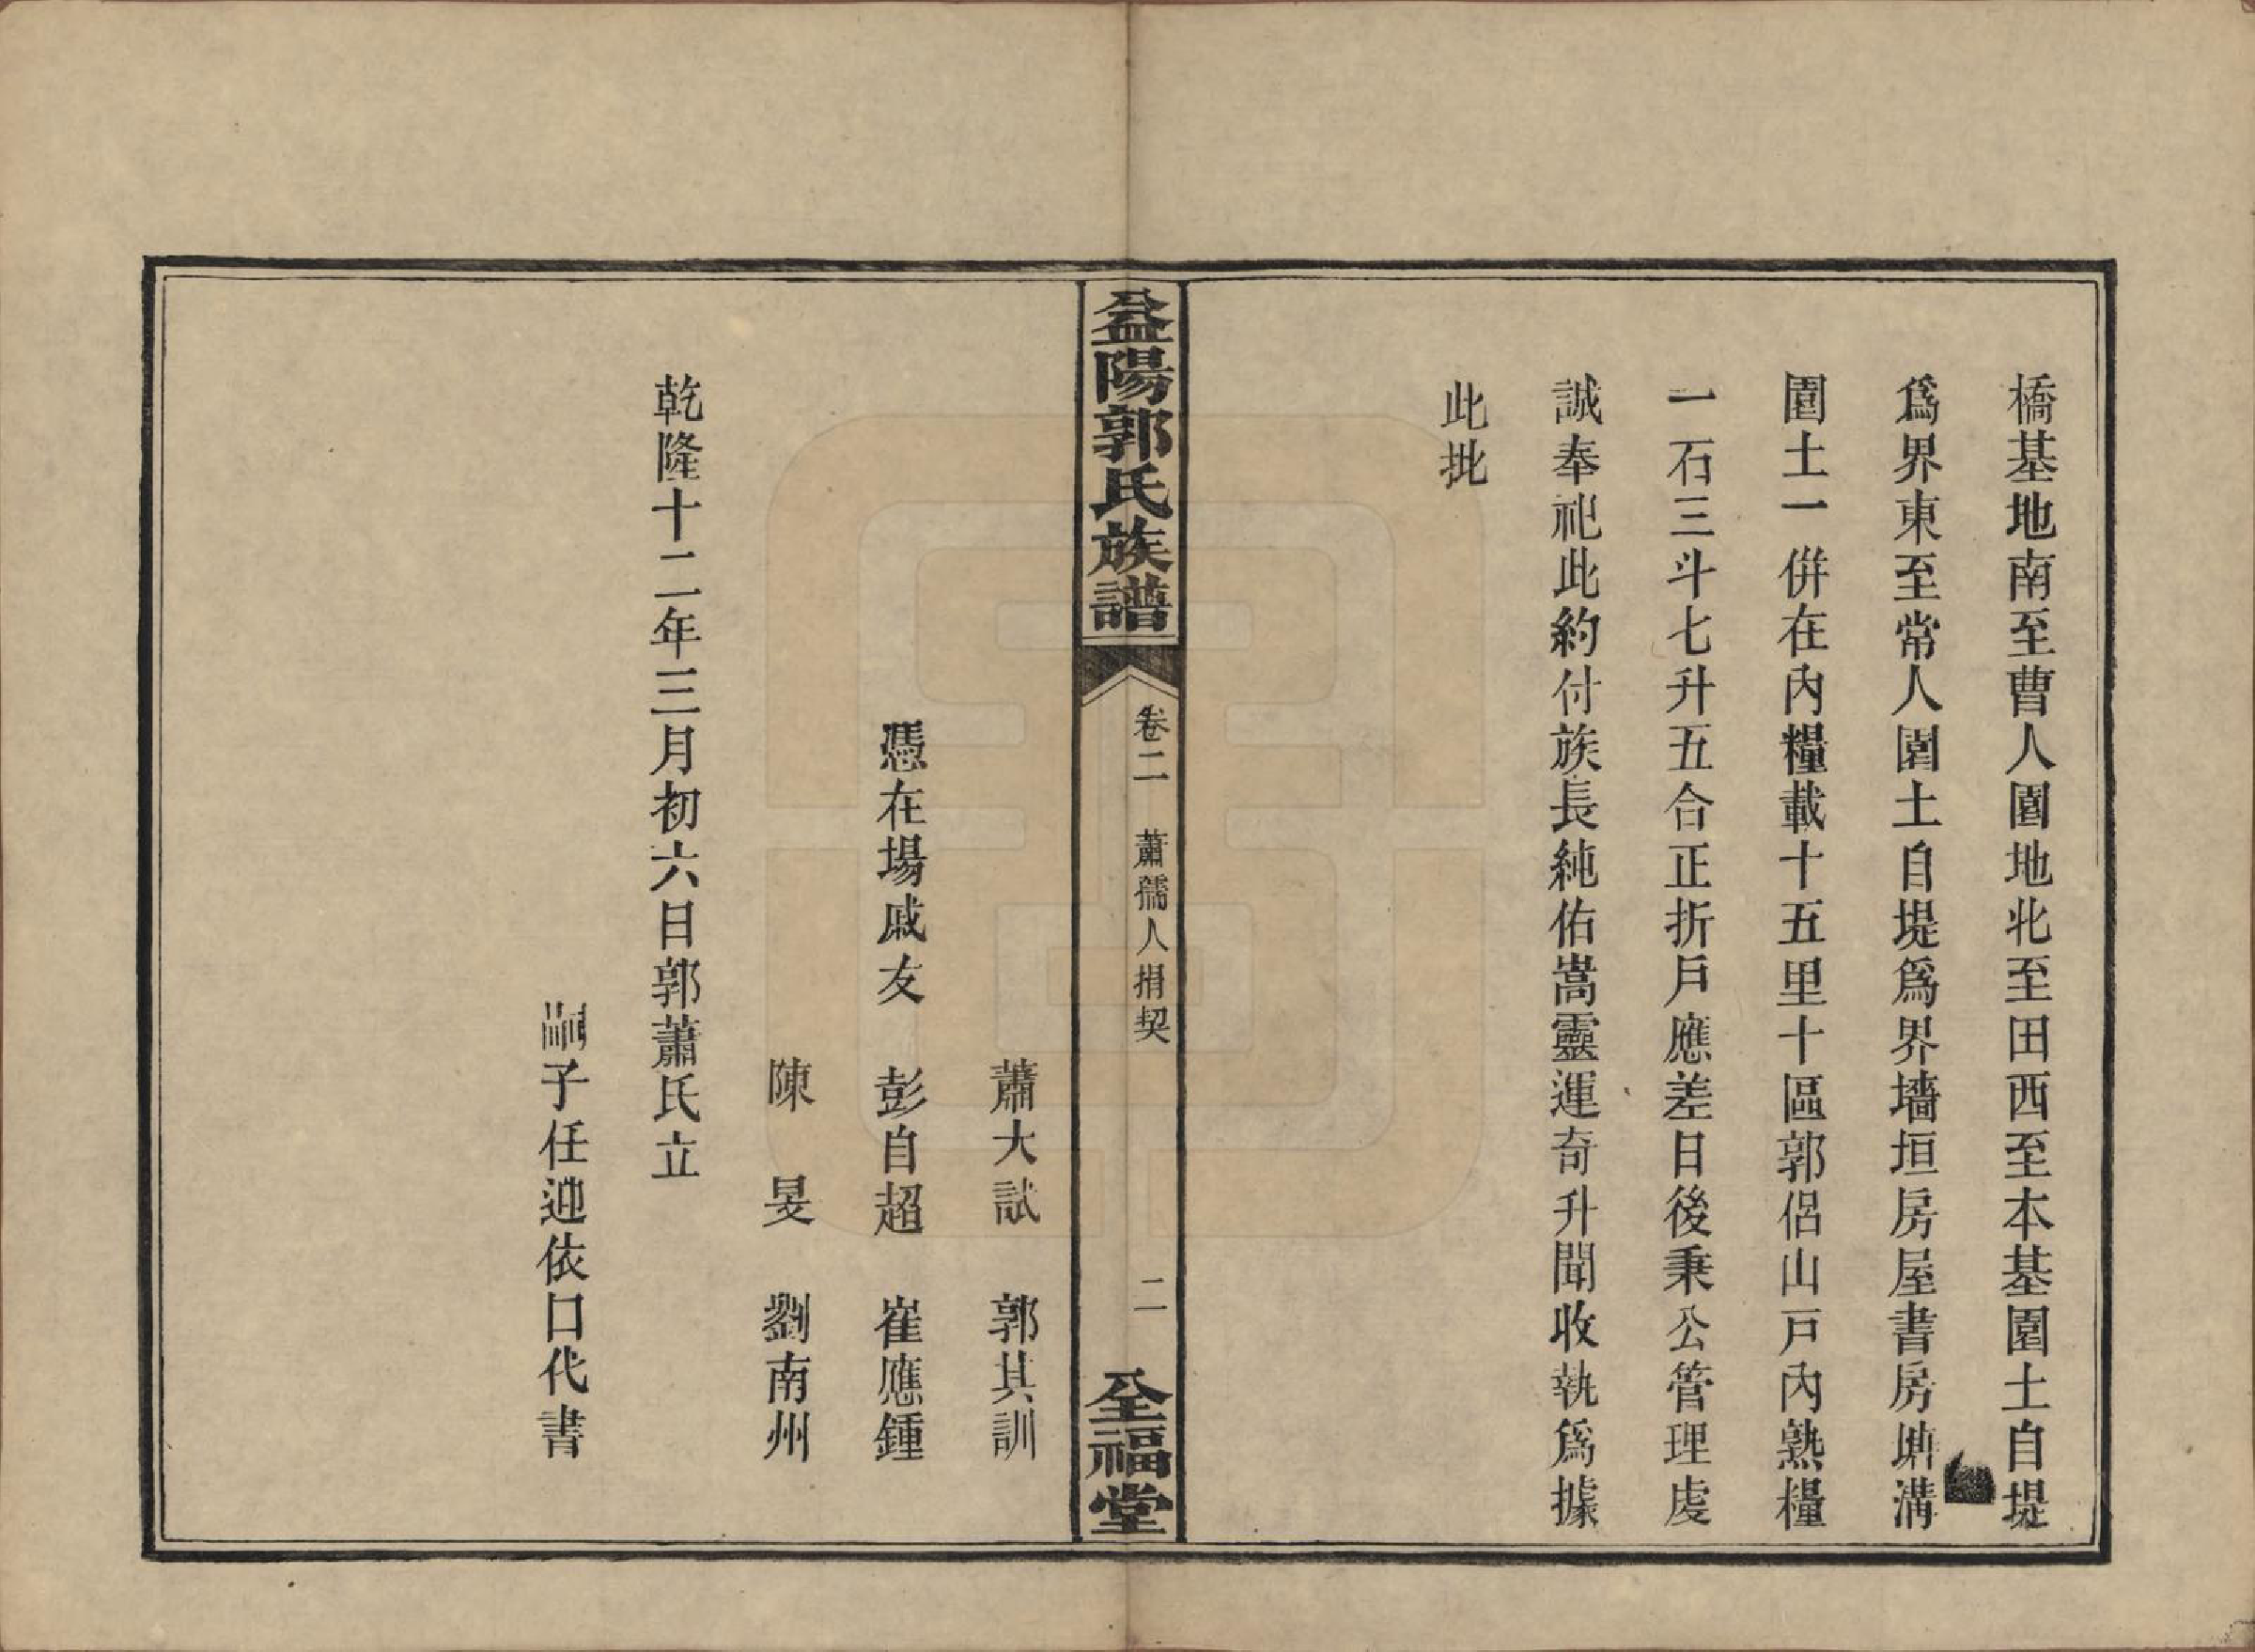 橋基地南至曹人園地北至田西至本基園土自堤
爲界東至常人園土自堤爲界墻垣房屋書房塘溝
園土一併在內糧載十五里十區郭侶山戶內熟糧
一石三斗七升五合正折戶應差日後秉公管理虔
誠奉祀此約付族長純佑嵩靈運奇升聞收執爲據
此批
益陽郭氏族譜
卷二 蕭孺人捐契
二
全福堂
蕭大試 郭其訓
憑在場戚友 彭自超 崔應鍾
陳旻 劉南州
乾隆十二年三月初六日郭蕭氏立
嗣子任迎依口代書